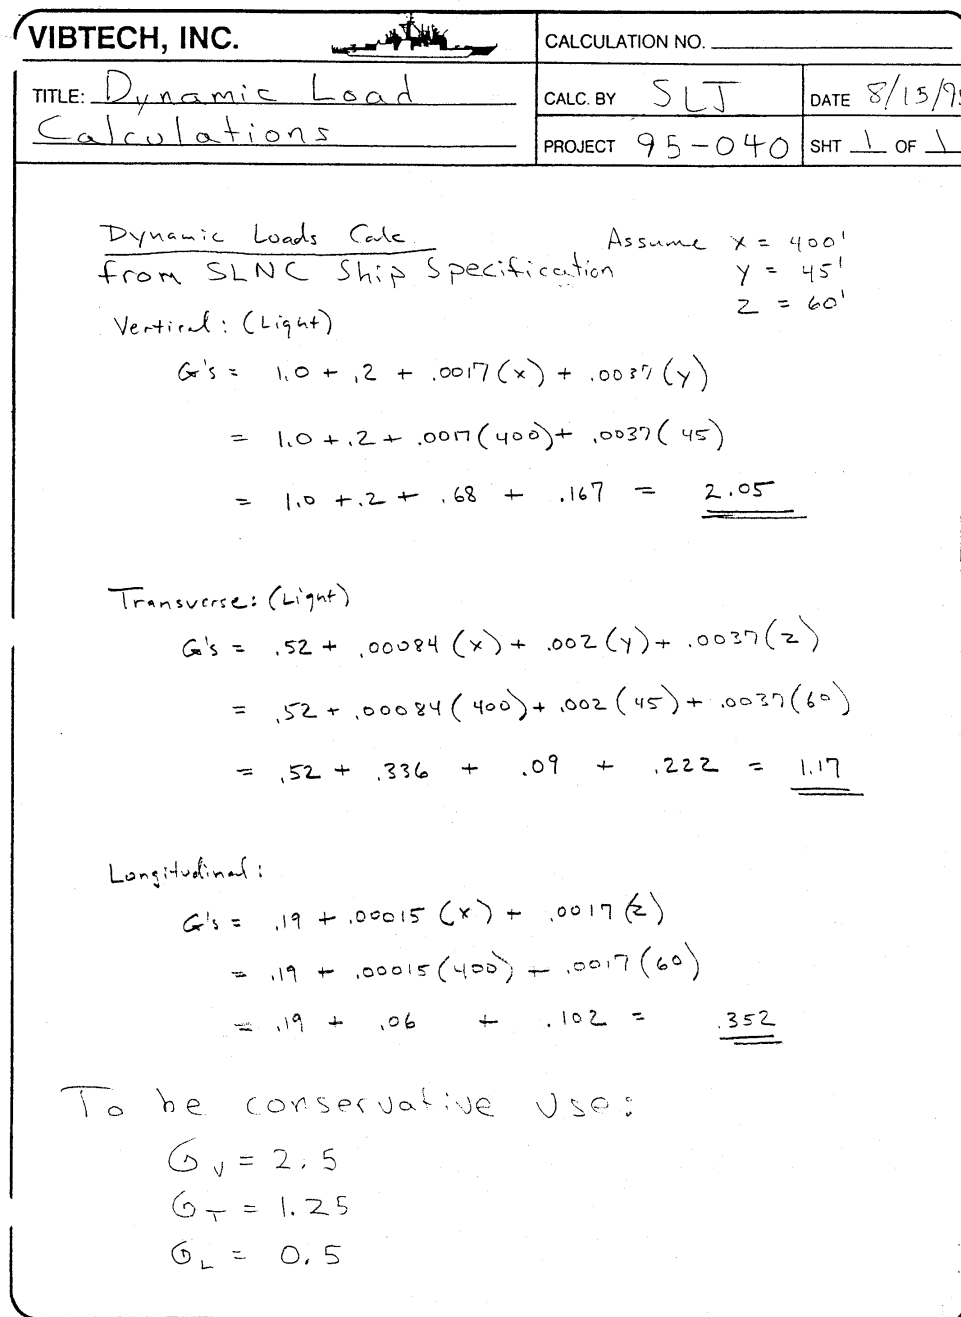 VIBTECH, INC.
CALCULATION NO.
TITLE: Dynamic Load
Calculations
CALC. BY SLJ
DATE 8/15/9
PROJECT 95-040
SHT 1 OF 1
Dynamic Loads Calc
from SLNC Ship Specification
Assume x = 400'
y = 45'
z = 60'
Vertical: (Light)
G's = 1.0 + .2 + .0017(x) + .0037(y)
= 1.0 + .2 + .0017(400) + .0037(45)
= 1.0 + .2 + .68 + .167 = 2.05
Transverse: (Light)
G's = .52 + .00084(x) + .002(y) + .0037(z)
= .52 + .00084(400) + .002(45) + .0037(60)
= .52 + .336 + .09 + .222 = 1.17
Longitudinal:
G's = .19 + .00015(x) + .0017(z)
= .19 + .00015(400) + .0017(60)
= .19 + .06 + .102 = .352
To be conservative use:
GV = 2.5
GT = 1.25
GL = 0.5